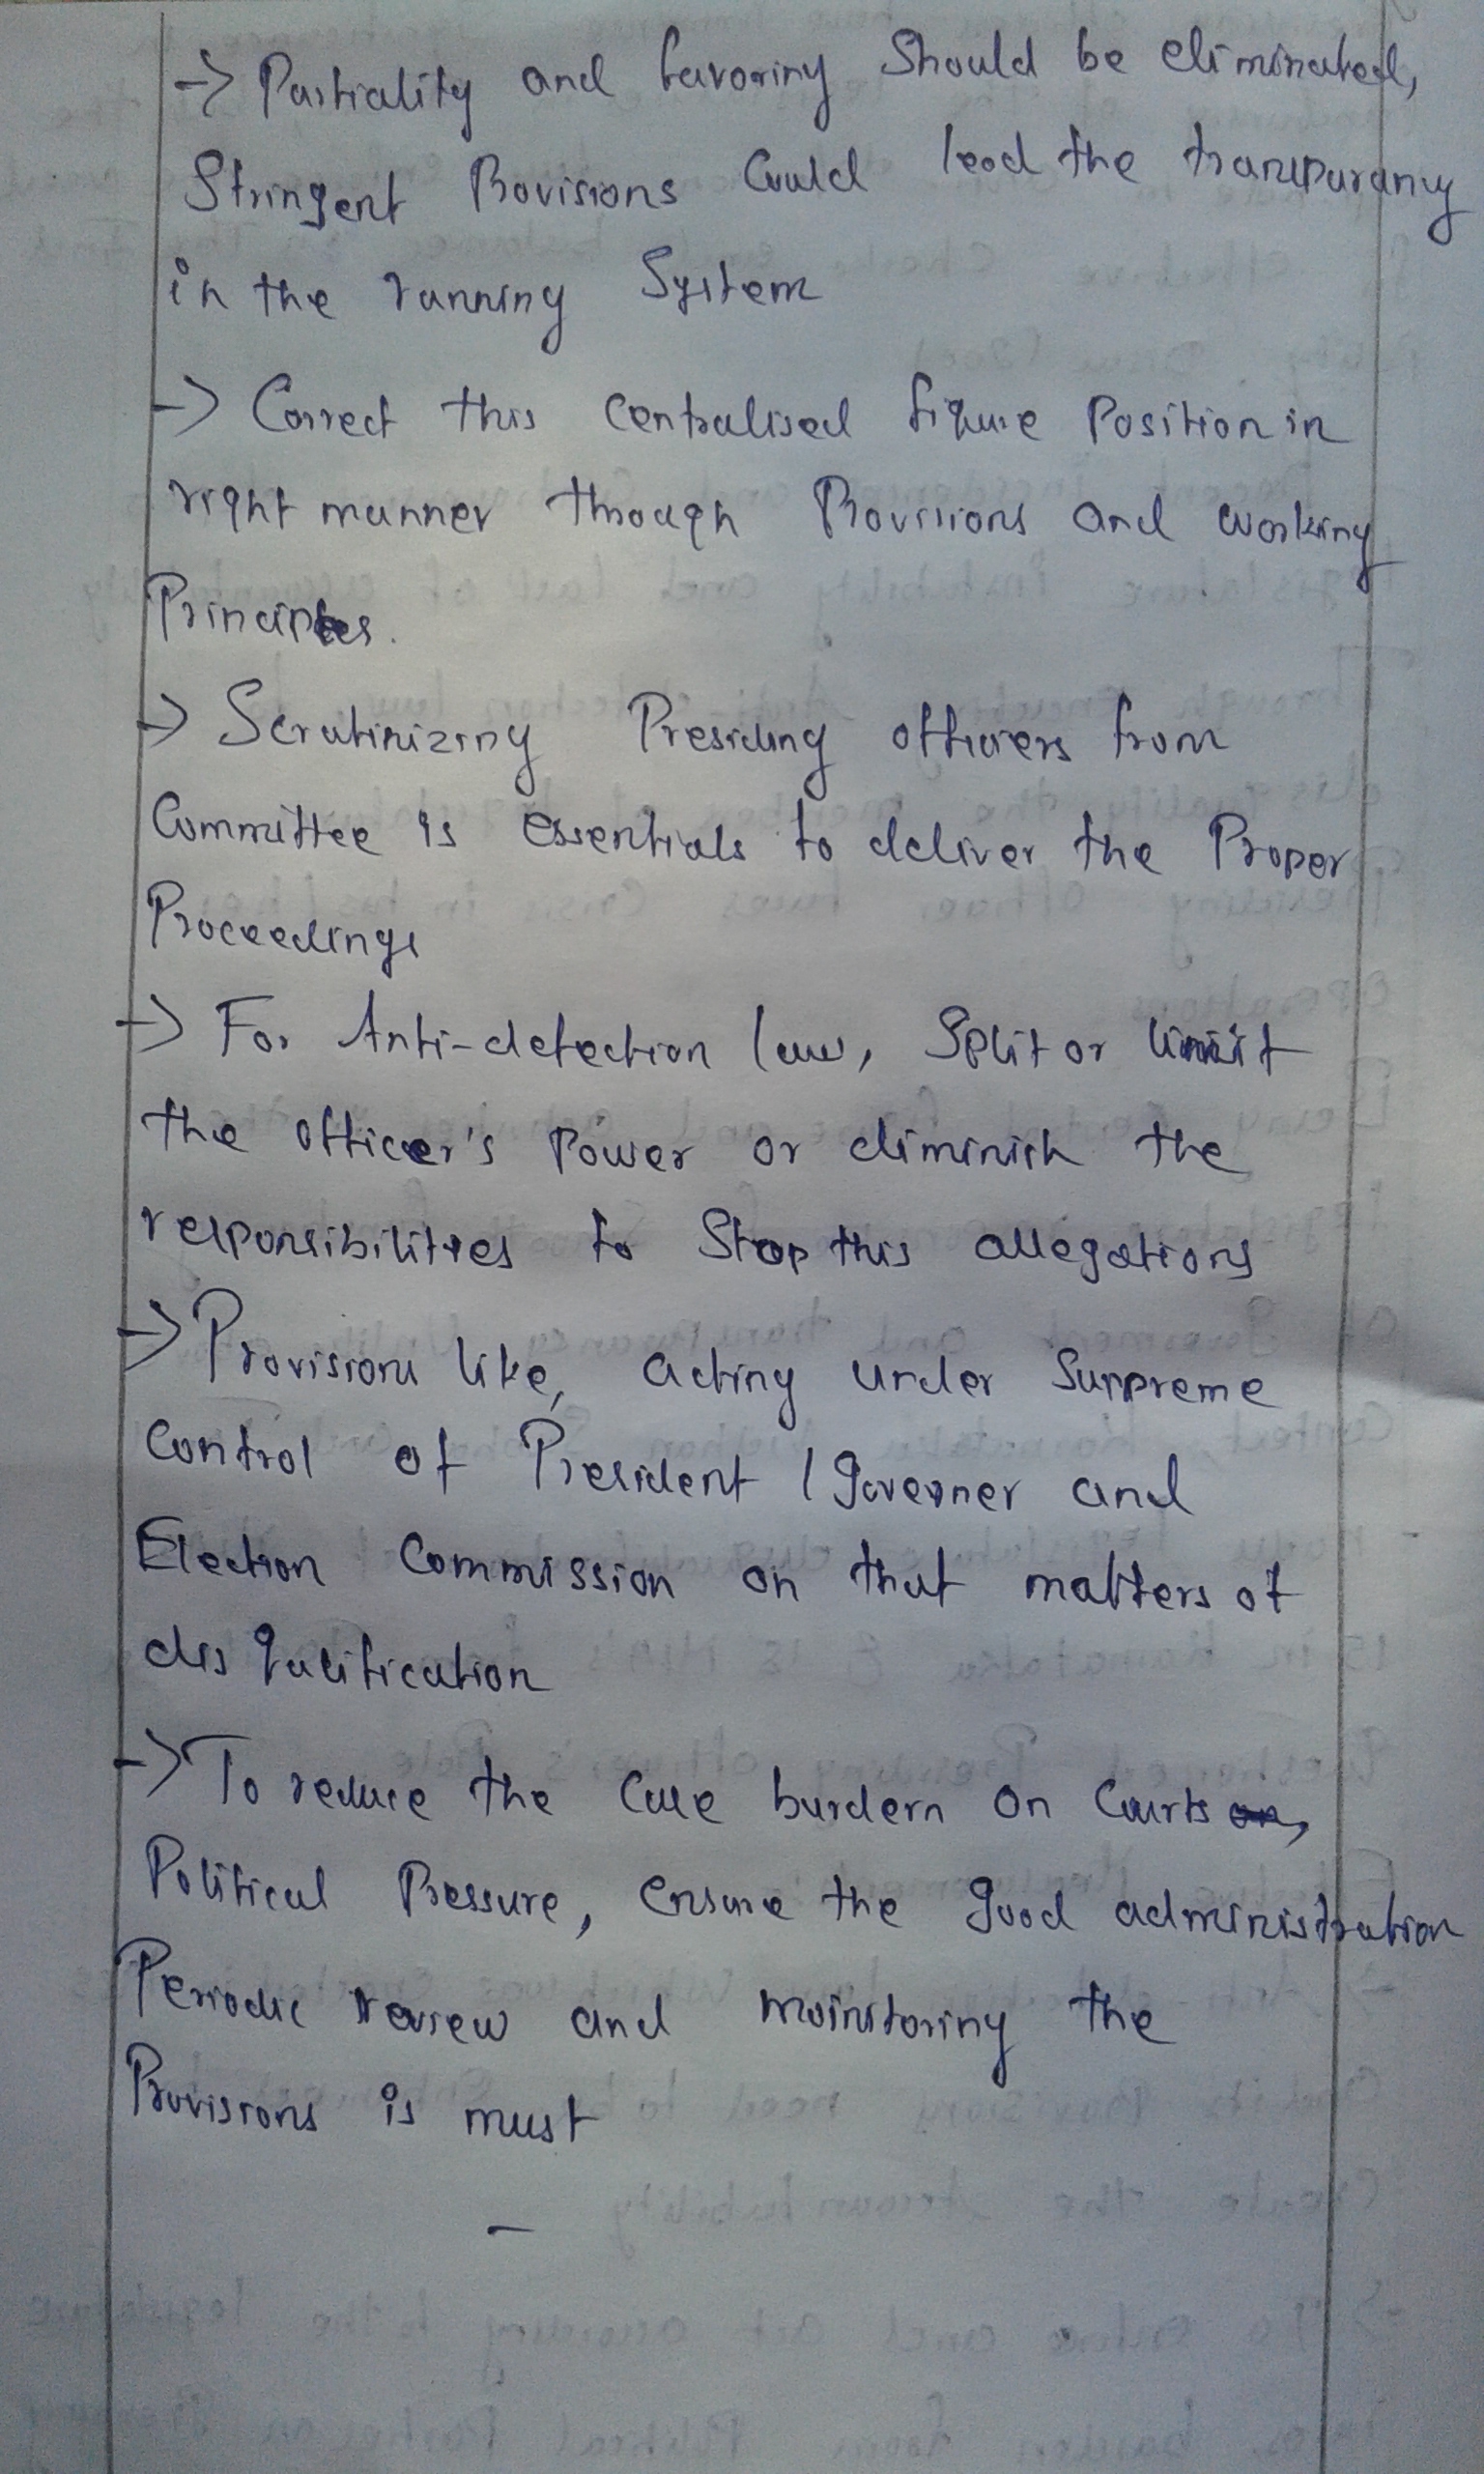 -> Partiality and favoring Should be eliminated,
Stringent Provisions Could lead the transparancy
in the running System
-> Correct this Centralised figure Position in
right manner through Provisions and working
Principles.
-> Scrutinizing Presiding officers from
Committee is essentials to deliver the Proper
Proceedings
-> For Anti-defection law, Split or limit
the officer's Power or diminish the
responsibilities to Stop this allegations
-> Provisions like, acting under Surpreme
Control of President / Governer and
Election Commission on that matters of
disqualification
-> To reduce the Case burdern on Courts,
Political Pressure, ensure the good administration
Periodic review and mointoring the
Provisions is must
-